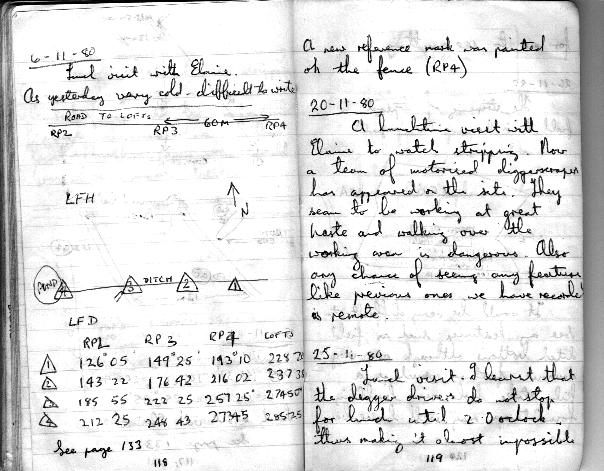 6-11-80
Lunch visit with Elaine.
As yesterday very cold - difficult to write
ROAD TO LOFTS
RP2 RP3 60M RP4
LFH
N
POND 4 3 DITCH 2 1
LFD
RP2 RP3 RP4 LOFTS
1 126° 05' 149° 25' 193° 10
2 143 22 176 42 216 02
3 185 55 222 25 257 25'
4 212 25 248 43 27345
See page 133
118
A new reference mark was painted
on the fence (RP4)
20-11-80
A lunchtime visit with
Elaine to watch stripping. Now
a team of motorised diggerscrapers
has appeared on the site. They
seem to be working at great
haste and walking over the
working area is dangerous. Also
any chance of seeing any features
like previous ones we have recorded
is remote.
25-11-80
Lunch visit. I learnt that
the digger drivers do not stop
for lunch until 2 0 oclock.
thus making it almost impossible
119